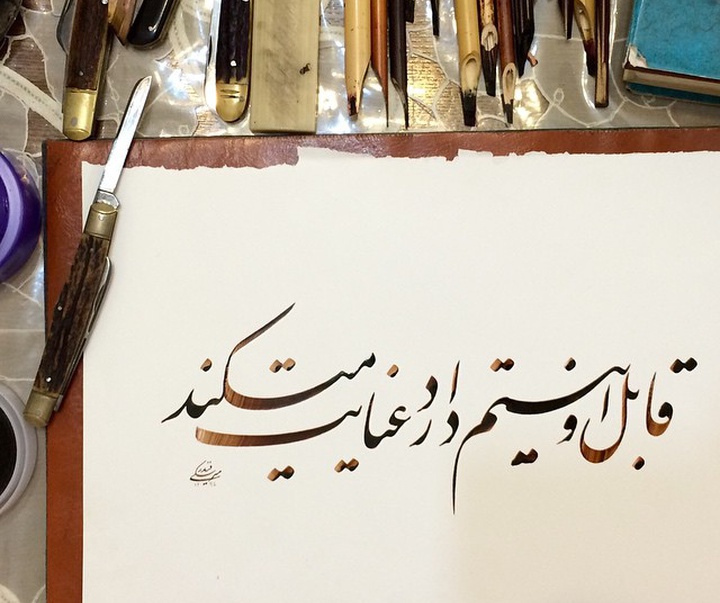 قابل او نیستم دارد عنایت میکند